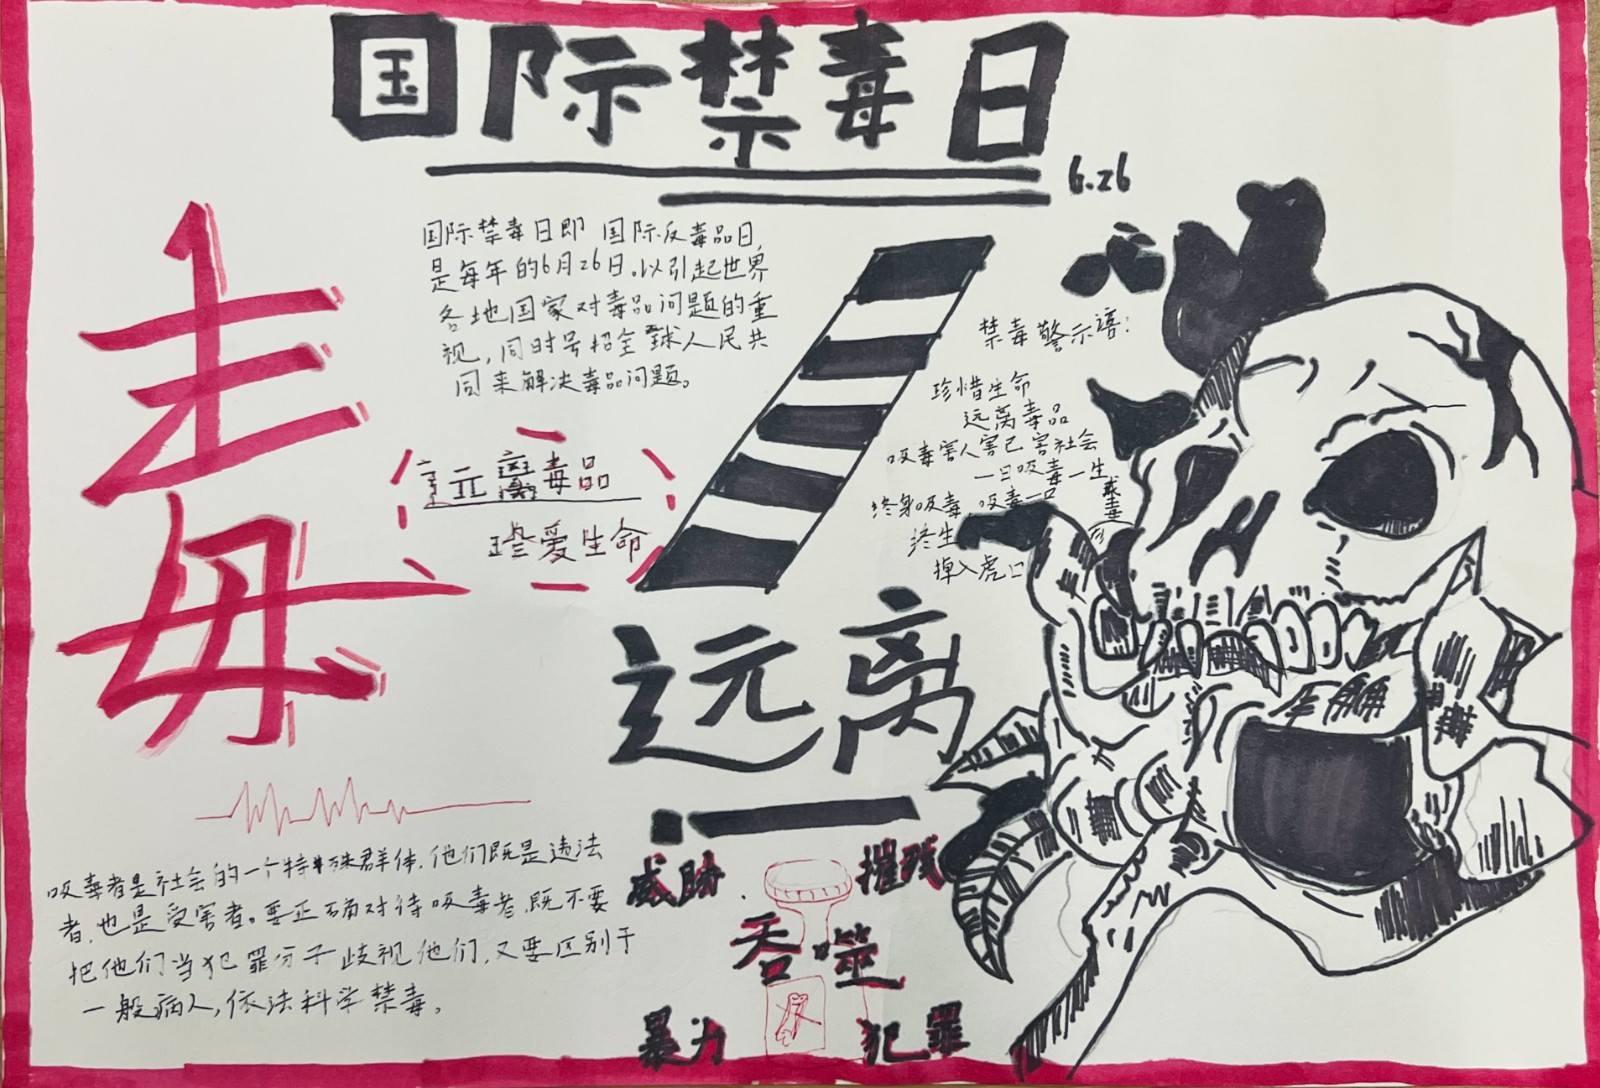 国际禁毒日
6.26
国际禁毒日即 国际反毒品日,
是每年的6月26日.以引起世界
各地国家对毒品问题的重
视,同时号招全球人民共
同来解决毒品问题。
毒
远离毒品
珍爱生命
禁毒警示语:
珍惜生命
远离毒品
吸毒害人害己 害社会
一日吸毒一生戒毒
终身吸毒,吸毒一口
终生
掉入虎口
远离
吸毒者是社会的一个特殊群体.他们既是违法
者,也是受害者。要正确对待吸毒者,既不要
把他们当犯罪分子歧视他们,又要区别于
一般病人,依法科学禁毒。
威胁
摧残
吞噬
暴力
犯罪